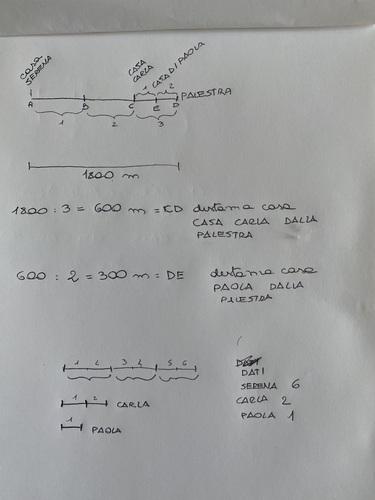 CASA
SERENA
CASA
CARLA
CASA DI PAOLA
1 2
PALESTRA
A B C E D
1 2 3
1800 m
1800 : 3 = 600 m = CD distanza casa
CASA CARLA DALLA
PALESTRA
600 : 2 = 300 m = DE distanza casa
PAOLA DALLA
PALESTRA
1 2 3 4 5 6
DATI
SERENA 6
1 2 CARLA
CARLA 2
1 PAOLA
PAOLA 1